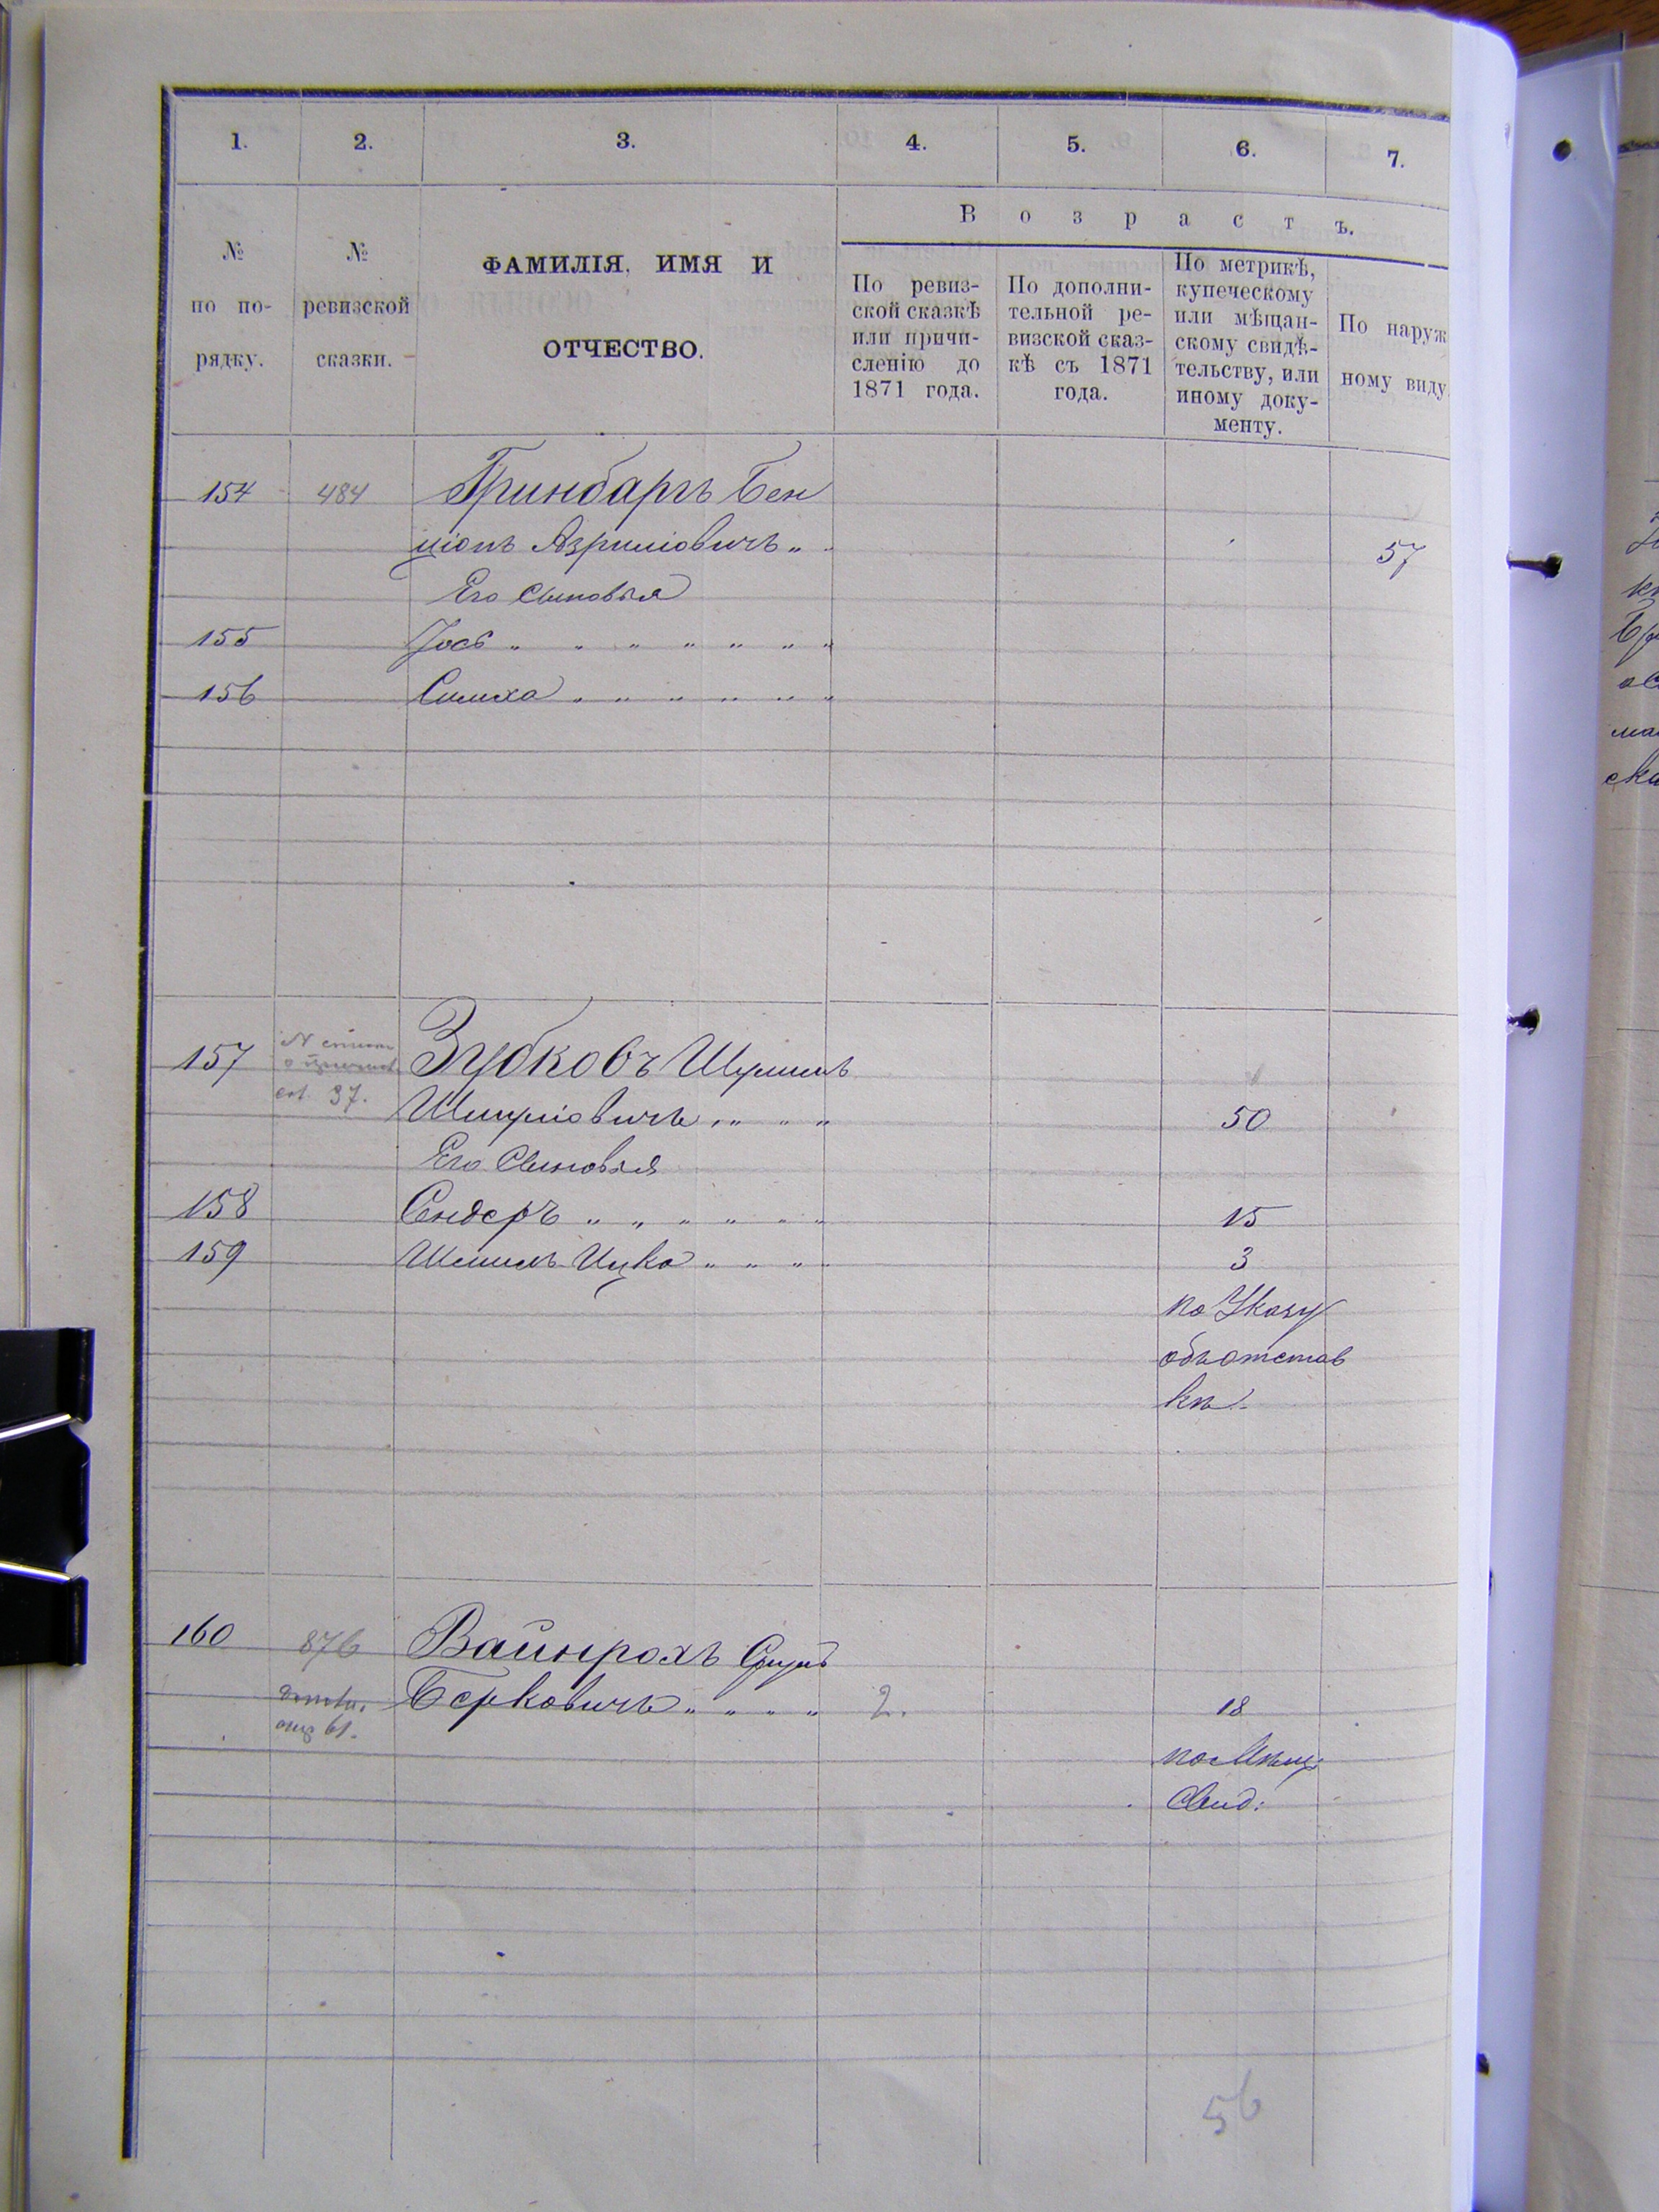 1. 2. 3. 4. 5. 6. 7.
№ по порядку.
№ ревизской сказки.
ФАМИЛІЯ, ИМЯ И
ОТЧЕСТВО.
Возрастъ.
По ревиз-
ской сказкѣ
или причи-
сленію до
1871 года.
По дополни-
тельной ре-
визской сказ-
кѣ съ 1871
года.
По метрикѣ,
купеческому
или мѣщан-
скому свидѣ-
тельству, или
иному доку-
менту.
По наруж
ному виду
154 484 Гринбаргъ Бен
ціонъ Азриліовичъ „ 57
Его Сыновья
155 Іось „ „ „ „ „ „ „
156 Симха „ „ „ „ „ „
157 Зубковъ Шулимъ
37.
Шмуліовичъ „ „ „ „ 50
Его Сыновья
158 Сендеръ „ „ „ „ „ „ 15
159 Шмилъ Ицко „ „ „ 3
по Указу
объ отстав
кѣ.
160 876 Вайнрохъ
Берковичъ „ „ „ „ 2. 18
61.
по Мѣщ:
Свид:
56